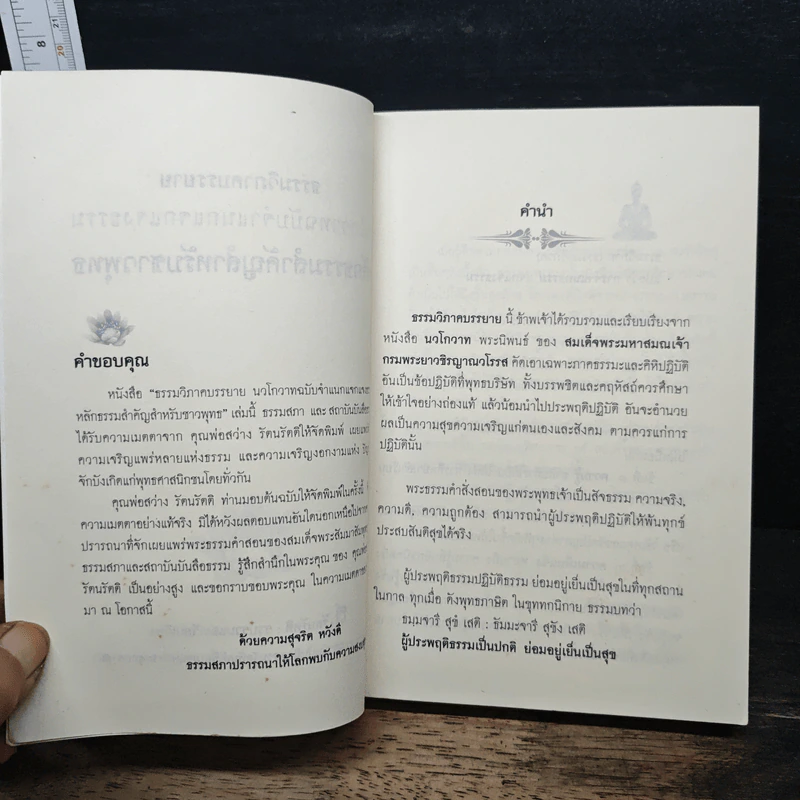 8
21
20
คำขอบคุณ
หนังสือ "ธรรมวิภาคบรรยาย นวโกวาทฉบับจำแนกแจกแจง
หลักธรรมสำคัญสำหรับชาวพุทธ" เล่มนี้ ธรรมสภา และ สถาบันบันลือ
ได้รับความเมตตาจาก คุณพ่อสว่าง รัตนรัตติให้จัดพิมพ์ เผยแพร่
ความเจริญแพร่หลายแห่งธรรม และความเจริญงอกงามแห่ง
จักบังเกิดแก่พุทธศาสนิกชนโดยทั่วกัน
คุณพ่อสว่าง รัตนรัตติ ท่านมอบต้นฉบับให้จัดพิมพ์ในครั้งนี้
ความเมตตาอย่างแท้จริง มิได้หวังผลตอบแทนอันใดนอกเหนือไปจาก
ปรารถนาที่จักเผยแผ่พระธรรมคำสอนของสมเด็จพระสัมมาสัมพุทธ
ธรรมสภาและสถาบันบันลือธรรม รู้สึกสำนึกในพระคุณ ของ คุณพ่อ
รัตนรัตติ เป็นอย่างสูง และขอกราบขอบพระคุณ ในความเมตตาของ
มา ณ โอกาสนี้
ด้วยความสุจริต หวังดี
ธรรมสภาปรารถนาให้โลกพบกับความสงบ
คำนำ
ธรรมวิภาคบรรยาย นี้ ข้าพเจ้าได้รวบรวมและเรียบเรียงจาก
หนังสือ นวโกวาท พระนิพนธ์ ของ สมเด็จพระมหาสมณเจ้า
กรมพระยาวชิรญาณวโรรส คัดเอาเฉพาะภาคธรรมะและคิหิปฏิบัติ
อันเป็นข้อปฏิบัติที่พุทธบริษัท ทั้งบรรพชิตและคฤหัสถ์ควรศึกษา
ให้เข้าใจอย่างถ่องแท้ แล้วน้อมนำไปประพฤติปฏิบัติ อันจะอำนวย
ผลเป็นความสุขความเจริญแก่ตนเองและสังคม ตามควรแก่การ
ปฏิบัตินั้น
พระธรรมคำสั่งสอนของพระพุทธเจ้าเป็นสัจธรรม ความจริง,
ความดี, ความถูกต้อง สามารถนำผู้ประพฤติปฏิบัติให้พ้นทุกข์
ประสบสันติสุขได้จริง
ผู้ประพฤติธรรมปฏิบัติธรรม ย่อมอยู่เป็นสุขในที่ทุกสถาน
ในกาล ทุกเมื่อ ดังพุทธภาษิต ในขุททกนิกาย ธรรมบทว่า
ธมฺมจารี สุขํ เสติ : ธัมมะจารี สุขัง เสติ
ผู้ประพฤติธรรมเป็นปกติ ย่อมอยู่เย็นเป็นสุข